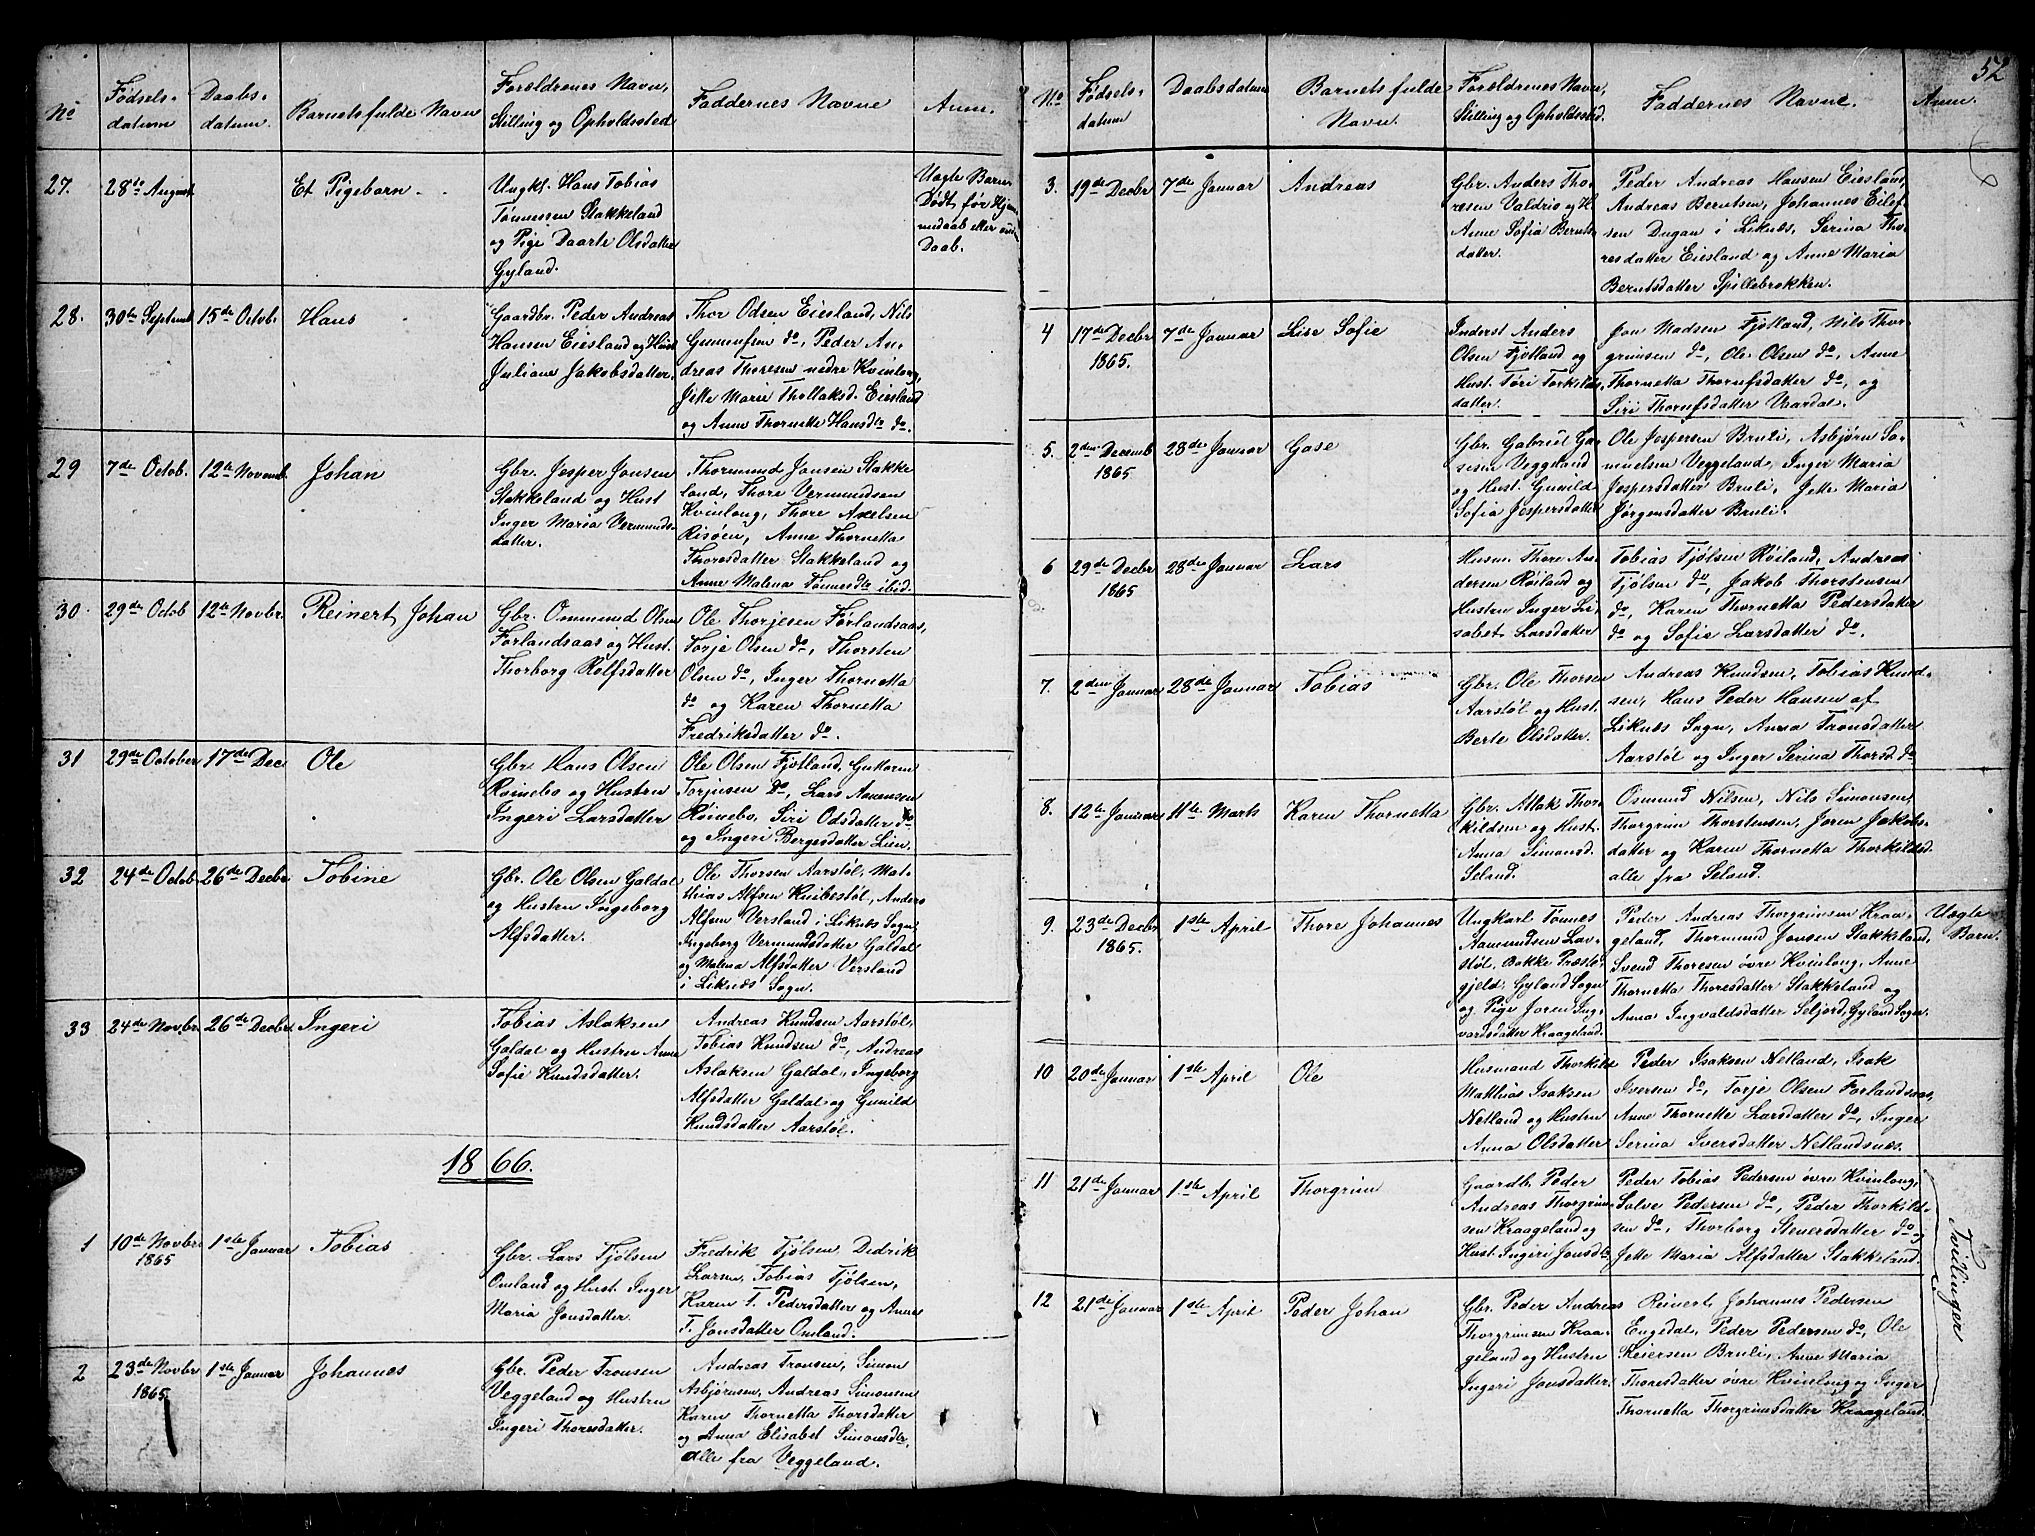 No
Fødsels-
datum
Daabs-
datum.
Barnets fulde Navn
Forældrenes Navn,
Stilling og Opholdssted
Faddernes Navne
Anm.
27.
28de August
Et Pigebarn
Ungk. Hans Tobias
Tønnessen Stakkeland
og Pige Daarte Olsdatter
Gyland.
Uægte Barn
Dødt før Hjem-
medaab eller
Daab.
28.
30te Septemb
15de Octob.
Hans
Gaardbr. Peder Andreas
Hansen Eiesland og Hust
Juliane Jakobsdatter.
Thor Odsen Eiesland, Nils
Gunnufsen do, Peder An-
dreas Thoresen nedre Kvinlog,
Jette Marie Thollaksd. Eiesland
og Anne Thornette Hansdtr do.
29
7de Octob.
12te Novemb.
Johan
Gbr. Jesper Jonsen
Stakkeland og Hust
Inger Maria Vermunds-
datter.
Thormund Jonsen Stakke
land, Thore Vermundsen
Kvinlong, Thore Axelsen
Risøen, Anne Thornetta
Thoresdatter Stakkeland og
Anne Malena Tønnesdtr ibid.
30
29de Octob
12te Novbr.
Reinert Johan
Gbr. Ommund Olsen
Førlandsaas og Hust.
Thorborg Rolfsdatter
Ole Thorjesen Førlandsaas,
Torje Olsen do, Thorsten
Olsen do, Inger Thornetta
do og Karen Thornetta
Fredriksdatter do.
31
29de October
17de Dec.
Ole
Gbr. Hans Olsen
Romebo og Hustru
Ingeri Larsdatter
Ole Olsen Fjotland, Guttorm
Torjusen do, Lars Aanensen
Romebo, Siri Odsdatter do
og Ingeri Bergesdatter Lien.
32
24de Octob
26de Decbr
Tobine
Gbr. Ole Olsen Galdal
og Hustru Ingeborg
Alfsdatter.
Ole Thorsen Aarstøl, Mat-
thias Alfsen Knibestøl, Anders
Alfsen Versland i Liknes Sogn,
Ingeborg Vermundsdatter Galdal
og Malena Alfsdatter Versland
i Liknæs Sogn.
33
24de Novbr
26de Decbr
Ingeri
Tobias Aslaksen
Galdal og Hustru Anne
Sofie Knudsdatter.
Andreas Knudsen Aarstøl,
Tobias Knudsen do, Andreas
Aslaksen Galdal, Ingeborg
Alfsdatter Galdal og Gunild
Knudsdatter Aarstøl.
1866.
1
10de Novbr
1865
1ste Januar
Tobias
Gbr. Lars Tjølsen
Omland og Hust. Inger
Maria Jonsdatter.
Fredrik Tjølsen, Dedrik
Larsen, Tobias Tjølsen,
Karen T. Pedersdatter og Anne
T. Jonsdatter Omland.
2
23de Novbr
1865
1ste Januar
Johannes
Gbr. Peder Tronsen
Veggeland og Hustru
Ingeri Thoresdatter.
Andreas Tronsen, Simon
Asbjørnsen, Andreas Simonsen
Karen Thornetta Thorsdatter
og Anna Elisabet Simonsdtr,
alle fra Veggeland.
52
No
Fødsels-
datum
Daabsdatum
Barnets fulde
Navn.
Forældrenes Navn,
Stilling og Opholdssted.
Faddernes Navne.
Anm.
3.
19de Decbr
7de Januar
Andreas
Gbr. Anders Tho-
resen Valdrio og H.
Anne Sofia Bernts-
datter.
Peder Andreas Hansen Eiesland,
Andreas Berntsen, Johannes Eilef-
sen Dugan i Liknes, Serina Tho-
resdatter Eiesland og Anne Maria
Berntsdatter Spillebrokken.
4
17de Decbr
1865.
7de Januar
Lise Sofie
Inderst Anders
Olsen Fjotland og
Hust. Tøri Torkilds
datter.
Jon Madsen Fjotland, Nils Thor-
grimsen do, Ole Olsen do, Anne
Thornetta Thorufsdatter do, og
Siri Thorufsdatter Vaardal.
5.
2den Decemb
1865
28de Januar
Gose
Gbr. Gabriel Go-
sesen Veggeland
og Hust. Gunild
Sofia Jespersdatter
Ole Jespersen Bruli, Asbjørn Sa-
muelsen Veggeland, Inger Maria
Jespersdatter Bruli, Jette Maria
Jørgensdatter Bruli.
6
29de Decbr
1865
28de Januar
Lars
Husm. Thore An-
dersen Røiland og
Hustru Inger Li-
sabet Larsdatter
Tobias Tjølsen Røiland, Andreas
Tjølsen do, Jakob Thorstensen
do, Karen Thornetta Pedersdatter
do og Sofie Larsdatter do.
7.
2den Januar
28de Januar
Tobias
Gbr. Ole Thorsen
Aarstøl og Hust.
Berte Olsdatter.
Andreas Knudsen, Tobias Knud-
sen, Hans Peder Hansen af
Liknes Sogn, Anna Tronsdatter
Aarstøl og Inger Serina Thorsd. do
8.
12te Januar
11te Marts
Karen Thornetta
Gbr. Atlak Thor-
kildsen og Hust.
Anna Simonsd.
Seland.
Osmund Nilsen, Nils Simonsen,
Thorgrim Thorstensen, Joren Jakobs-
datter og Karen Thornetta Thorkildsd.
alle fra Seland.
9.
23de Decbr
1865.
1ste April
Thore Johannes
Ungkarl Tønnes
Aamundsen Lav-
støl, Bakke Præste-
gjeld, Gyland Sogn
og Pige Joren Ing-
vorsdatter Kraageland.
Peder Andreas Thorgrimsen Kraa-
geland, Thormund Jonsen Stakkeland,
Svend Thoresen øvre Kvinlong, Anne
Thornetta Thoresdatter Stakkeland og
Anna Ingvaldsdatter Seljord, Gyland Sogn.
Uægte
Barn.
10
20de Januar
1ste April
Ole
Husmand Thorkild
Matthias Isaksen
Netland og Hustru
Anna Olsdatter
Peder Isaksen Netland, Isak
Iversen do, Torje Olsen Førlandsaas,
Anne Thornette Larsdatter do, Inger
Serina Iversdatter Netlandsnes.
11
21de Januar
1ste April
Thorgrim
Gaardb. Peder
Andreas Thorgrim-
sen Kraageland og
Hust. Ingeri Jonsdtr.
Peder Tobias Pedersen øvre Kvinlong,
Salve Pedersen do, Peder Thorkild-
sen do, Thorborg Stenersdatter do og
Jette Maria Alfsdatter Stakkeland.
Tvillinger
12
21de Januar
1ste April
Peder Johan
Gbr. Peder Andreas
Thorgrimsen Kraa-
geland og Hustru
Ingeri Jonsdatter.
Reinert Johannes Pedersen
Engedal, Peder Pedersen do, Ole
Reiersen Bruli, Anne Maria
Thoresdatter øvre Kvinlong og Inger
Thornetta Thorgrimsdatter Kraageland.